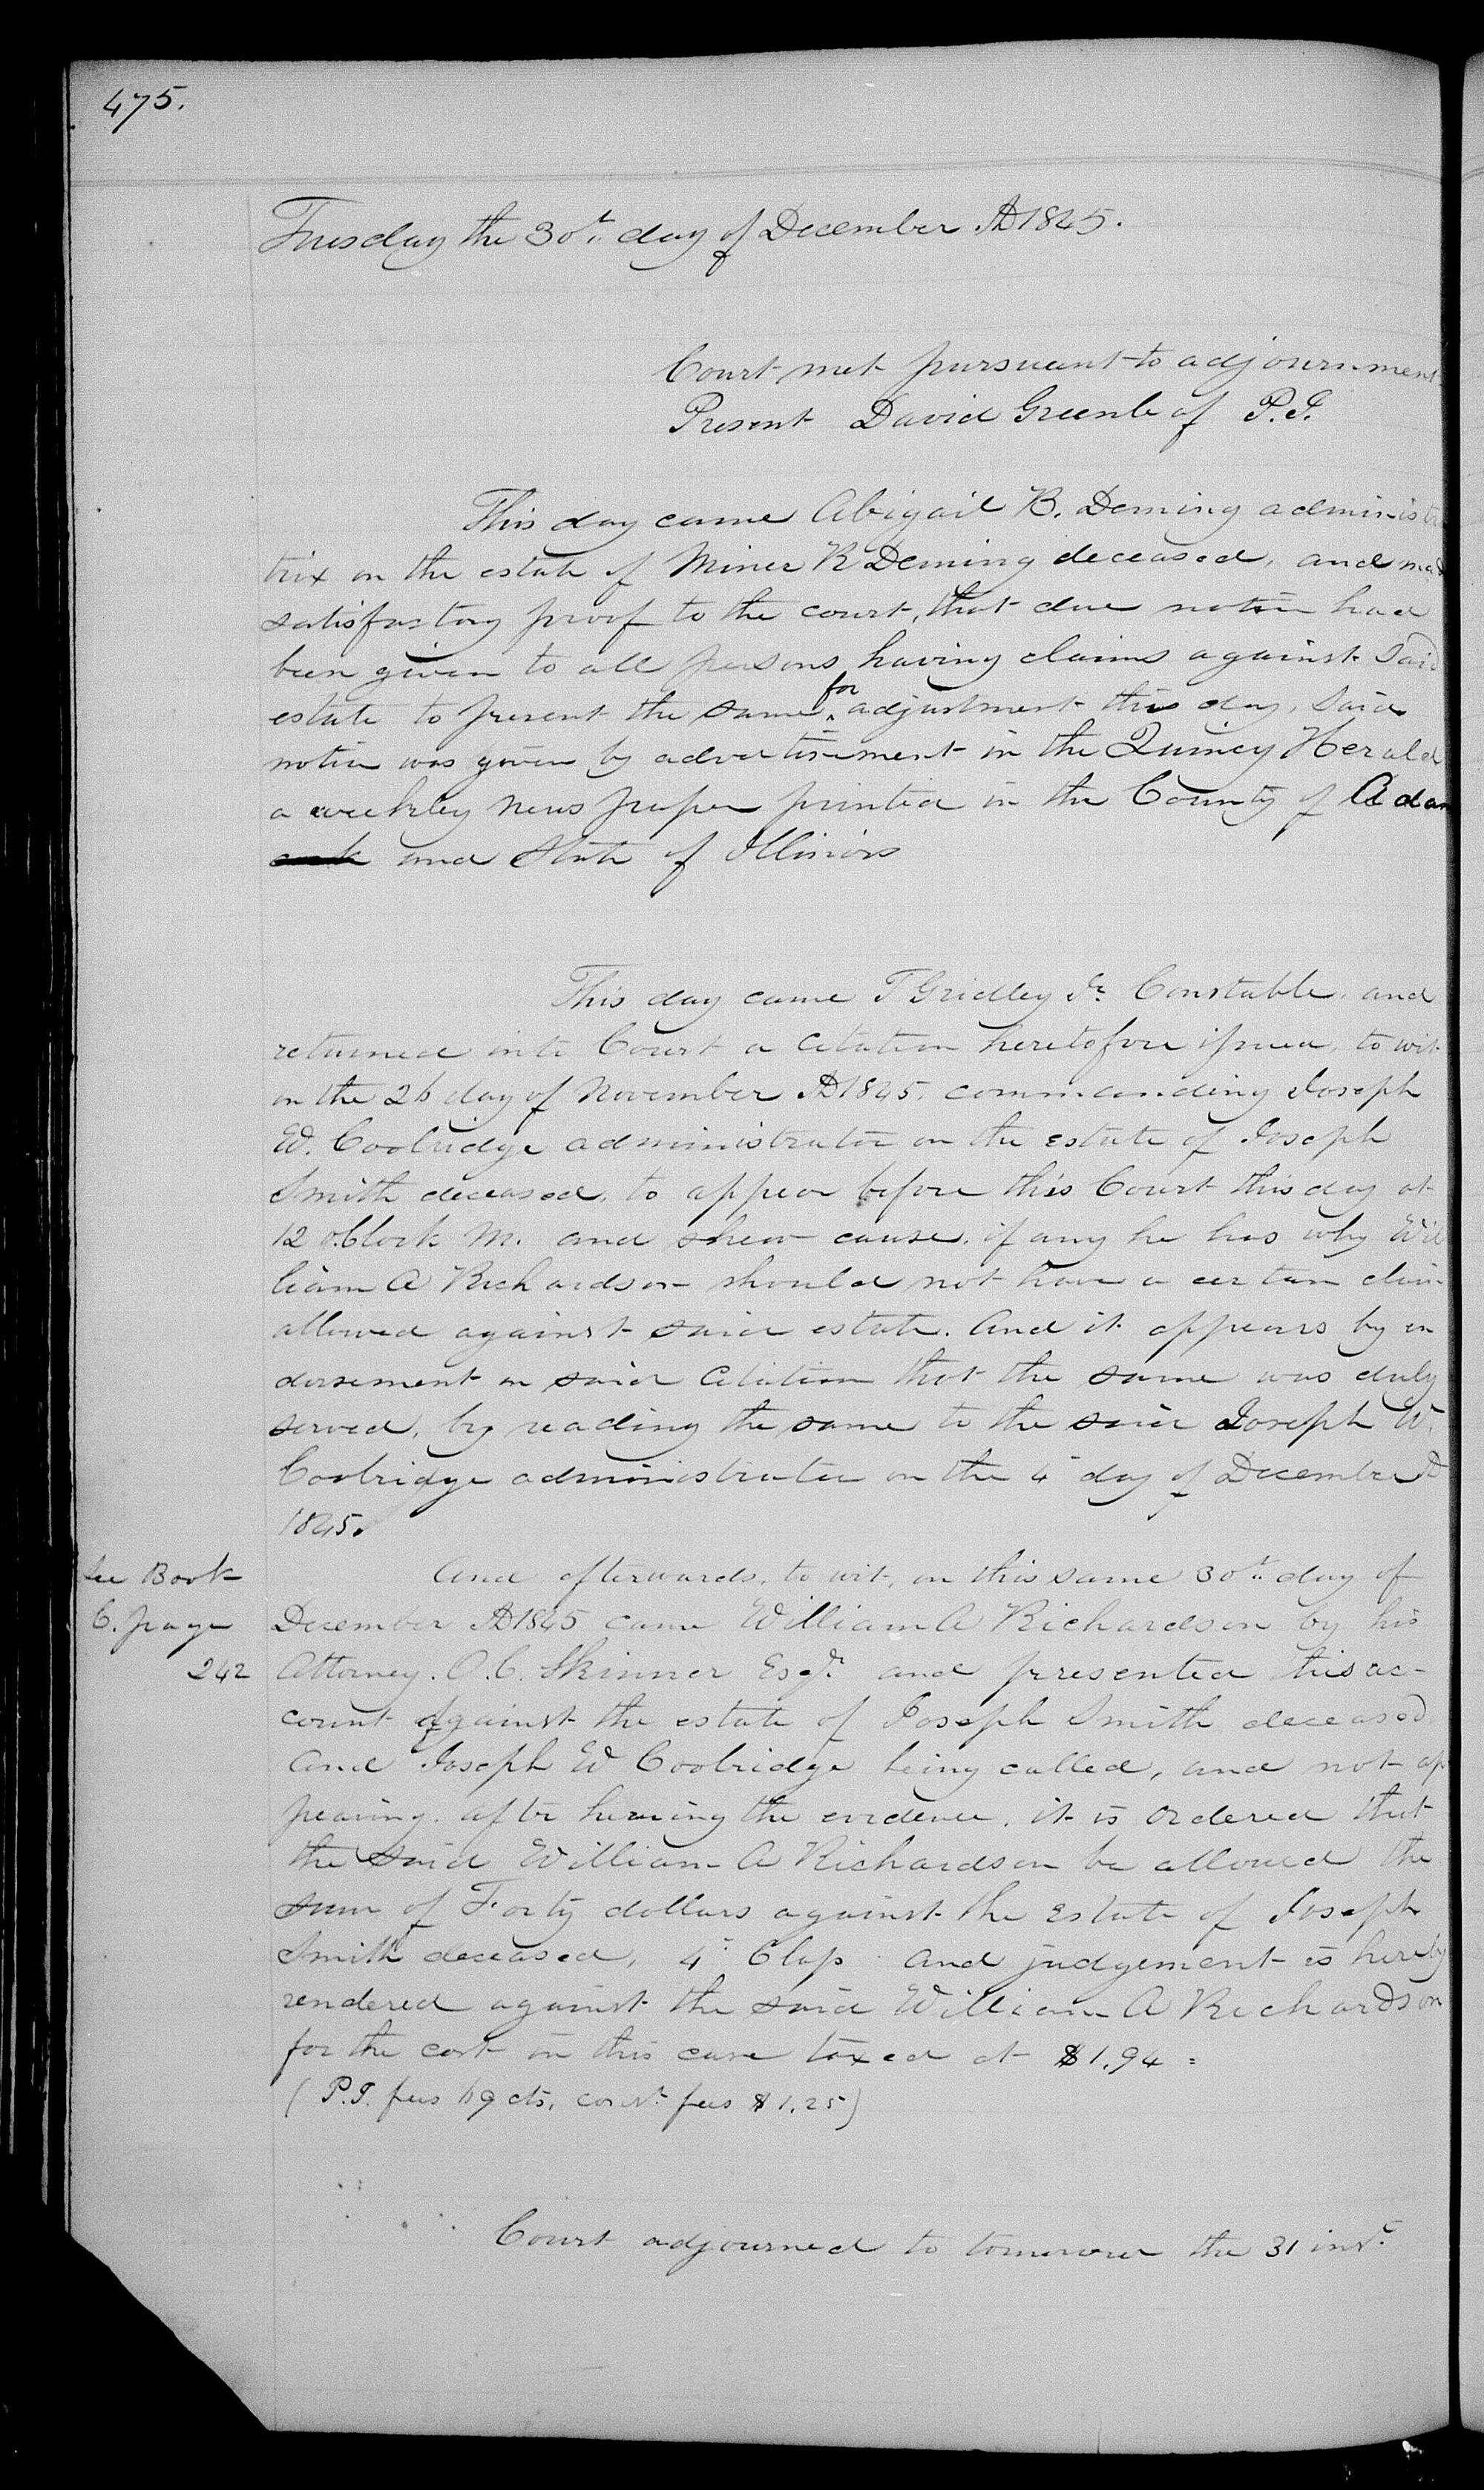 475.
Tuesday the 30th day of December AD 1845.
Court met pursuant to adjournment
Present David Greenleaf P. J.
This day came Abigail B. Deming administra
trix on the estate of Miner R Deming deceased, and mad
satisfactory proof to the court, that due notice had
been given to all persons having claims against Said
estate to present the same for adjustment this day, Said
notice was given by advertisement in the Quincy Herald
a weekly News paper printed in the County of Adam
and State of Illinois
This day came T Gridley Jr. Constable, and
returned into Court a Citation heretofore issued, to wit
on the 26 day of November AD 1845. commanding Joseph
W. Coolridge administrator on the estate of Joseph
Smith deceased, to appear before this Court this day at
12 oClock M. and shew cause, if any he has why Wil
liam A Richardson should not have a certain claim
allowed against said estate. And it appears by en
dorsement on said Citation that the same was duly
served, by reading the same to the said Joseph W.
Coolridge administrator on the 4th day of December AD
1845.
And afterwards, to wit, on this same 30th day of
See Book
C. page
242
December AD 1845 came William A Richardson by his
Attorney. O. C. Skinner Esqr. and presented his ac-
count against the estate of Joseph Smith deceased
and Joseph W Coolridge being called, and not ap
pearing. after hearing the evidence, it is ordered that
the said William A Richardson be allowed the
sum of Forty dollars against the Estate of Joseph
Smith deceased, 4th Class and judgement is hereby
rendered against the said William A Richardson
for the cost in this case taxed at $1.94 =
(P. J. fees 69 cts, const. fees $1.25)
Court adjourned to tomorrow the 31 inst.